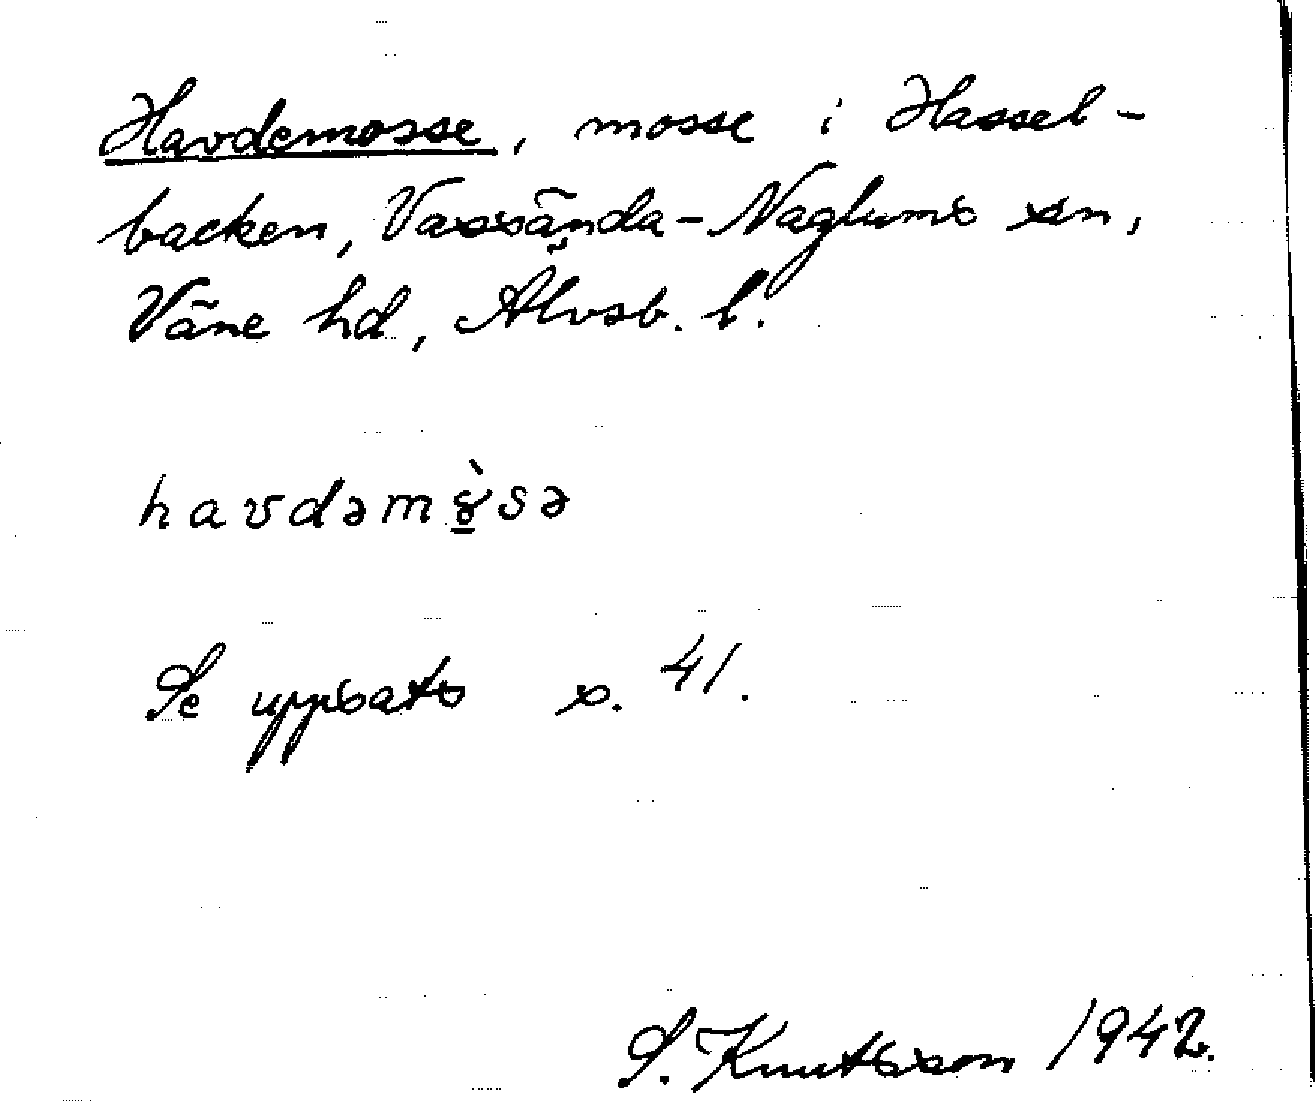 Havdemosse, mosse i Hassel-
backen, Vassända-Naglums sn,
Väne hd, Älvsb. l.
havdəmɣ̲̀sə
Se uppsats s. 41.
S. Knutsson 1942.